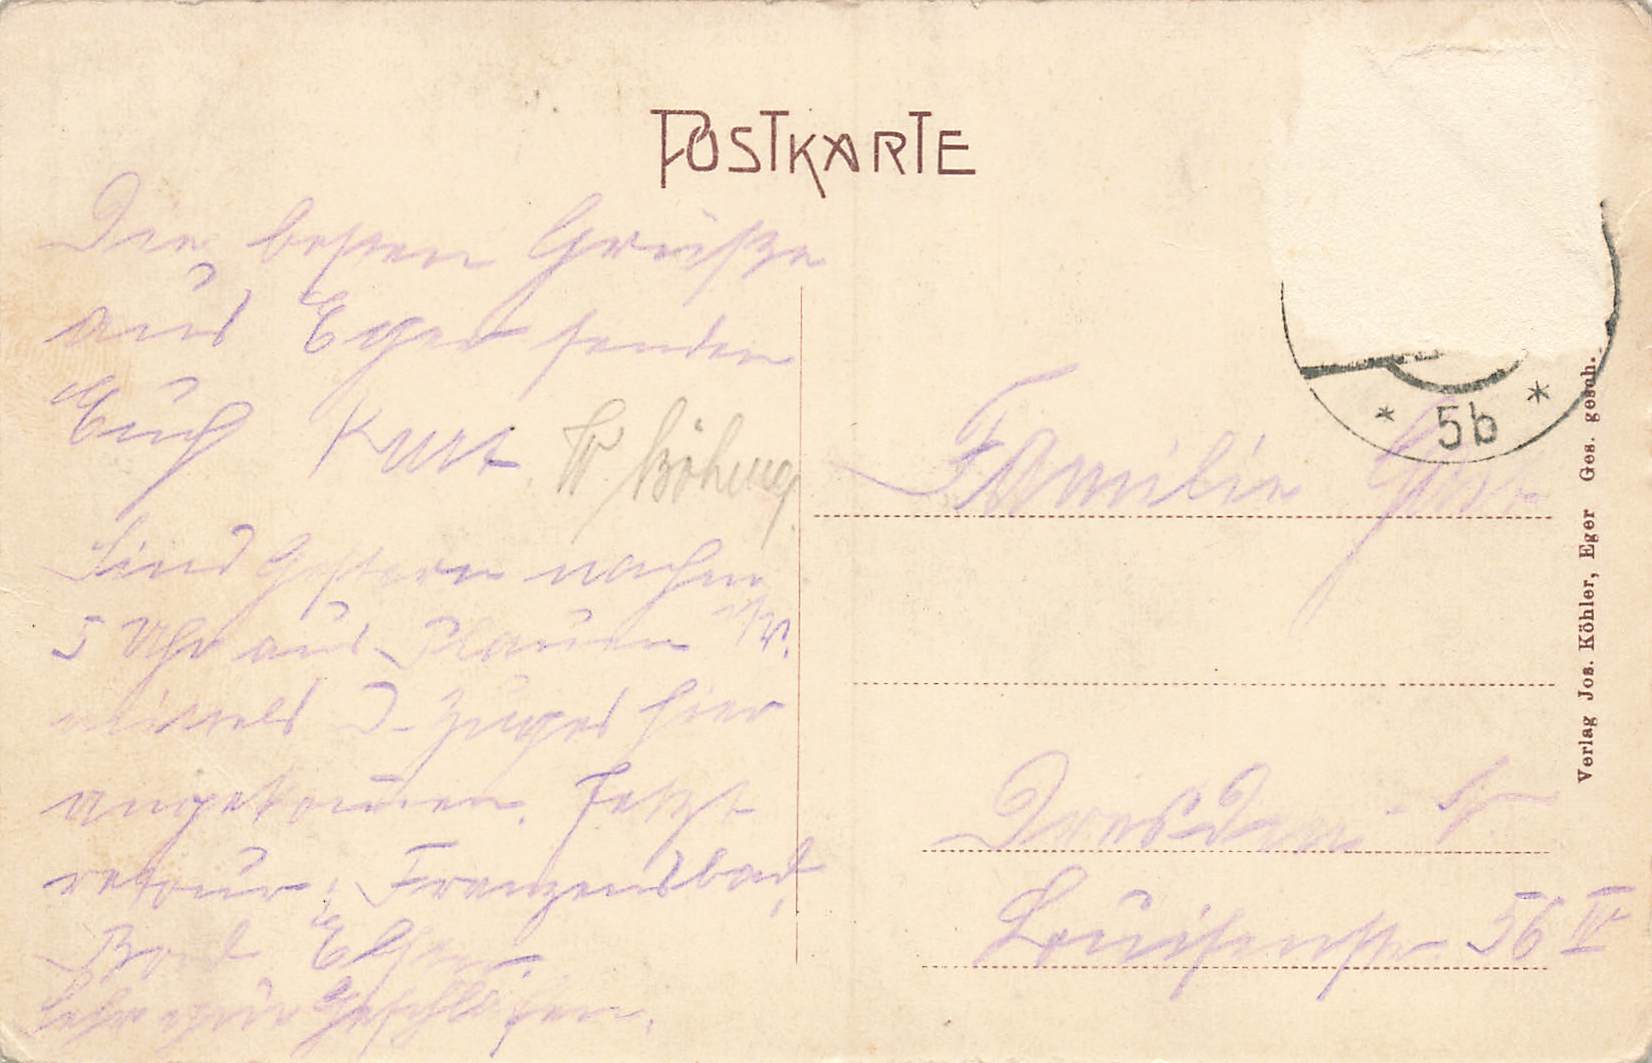 POSTKARTE
Die besten Grüße
aus Eger senden
Euch Kurt W. Böhme
Sind gestern nachm
5 Uhr aus Plauen i/V.
mittels D-Zuges hier
angekommen. Jetzt
retour: Franzensbad,
Bad Elster.
Sehr gut geschlafen.
Familie
Dresden-
Louisenstr 56 IV
5b
Verlag Jos. Köhler, Eger Ges. gesch.